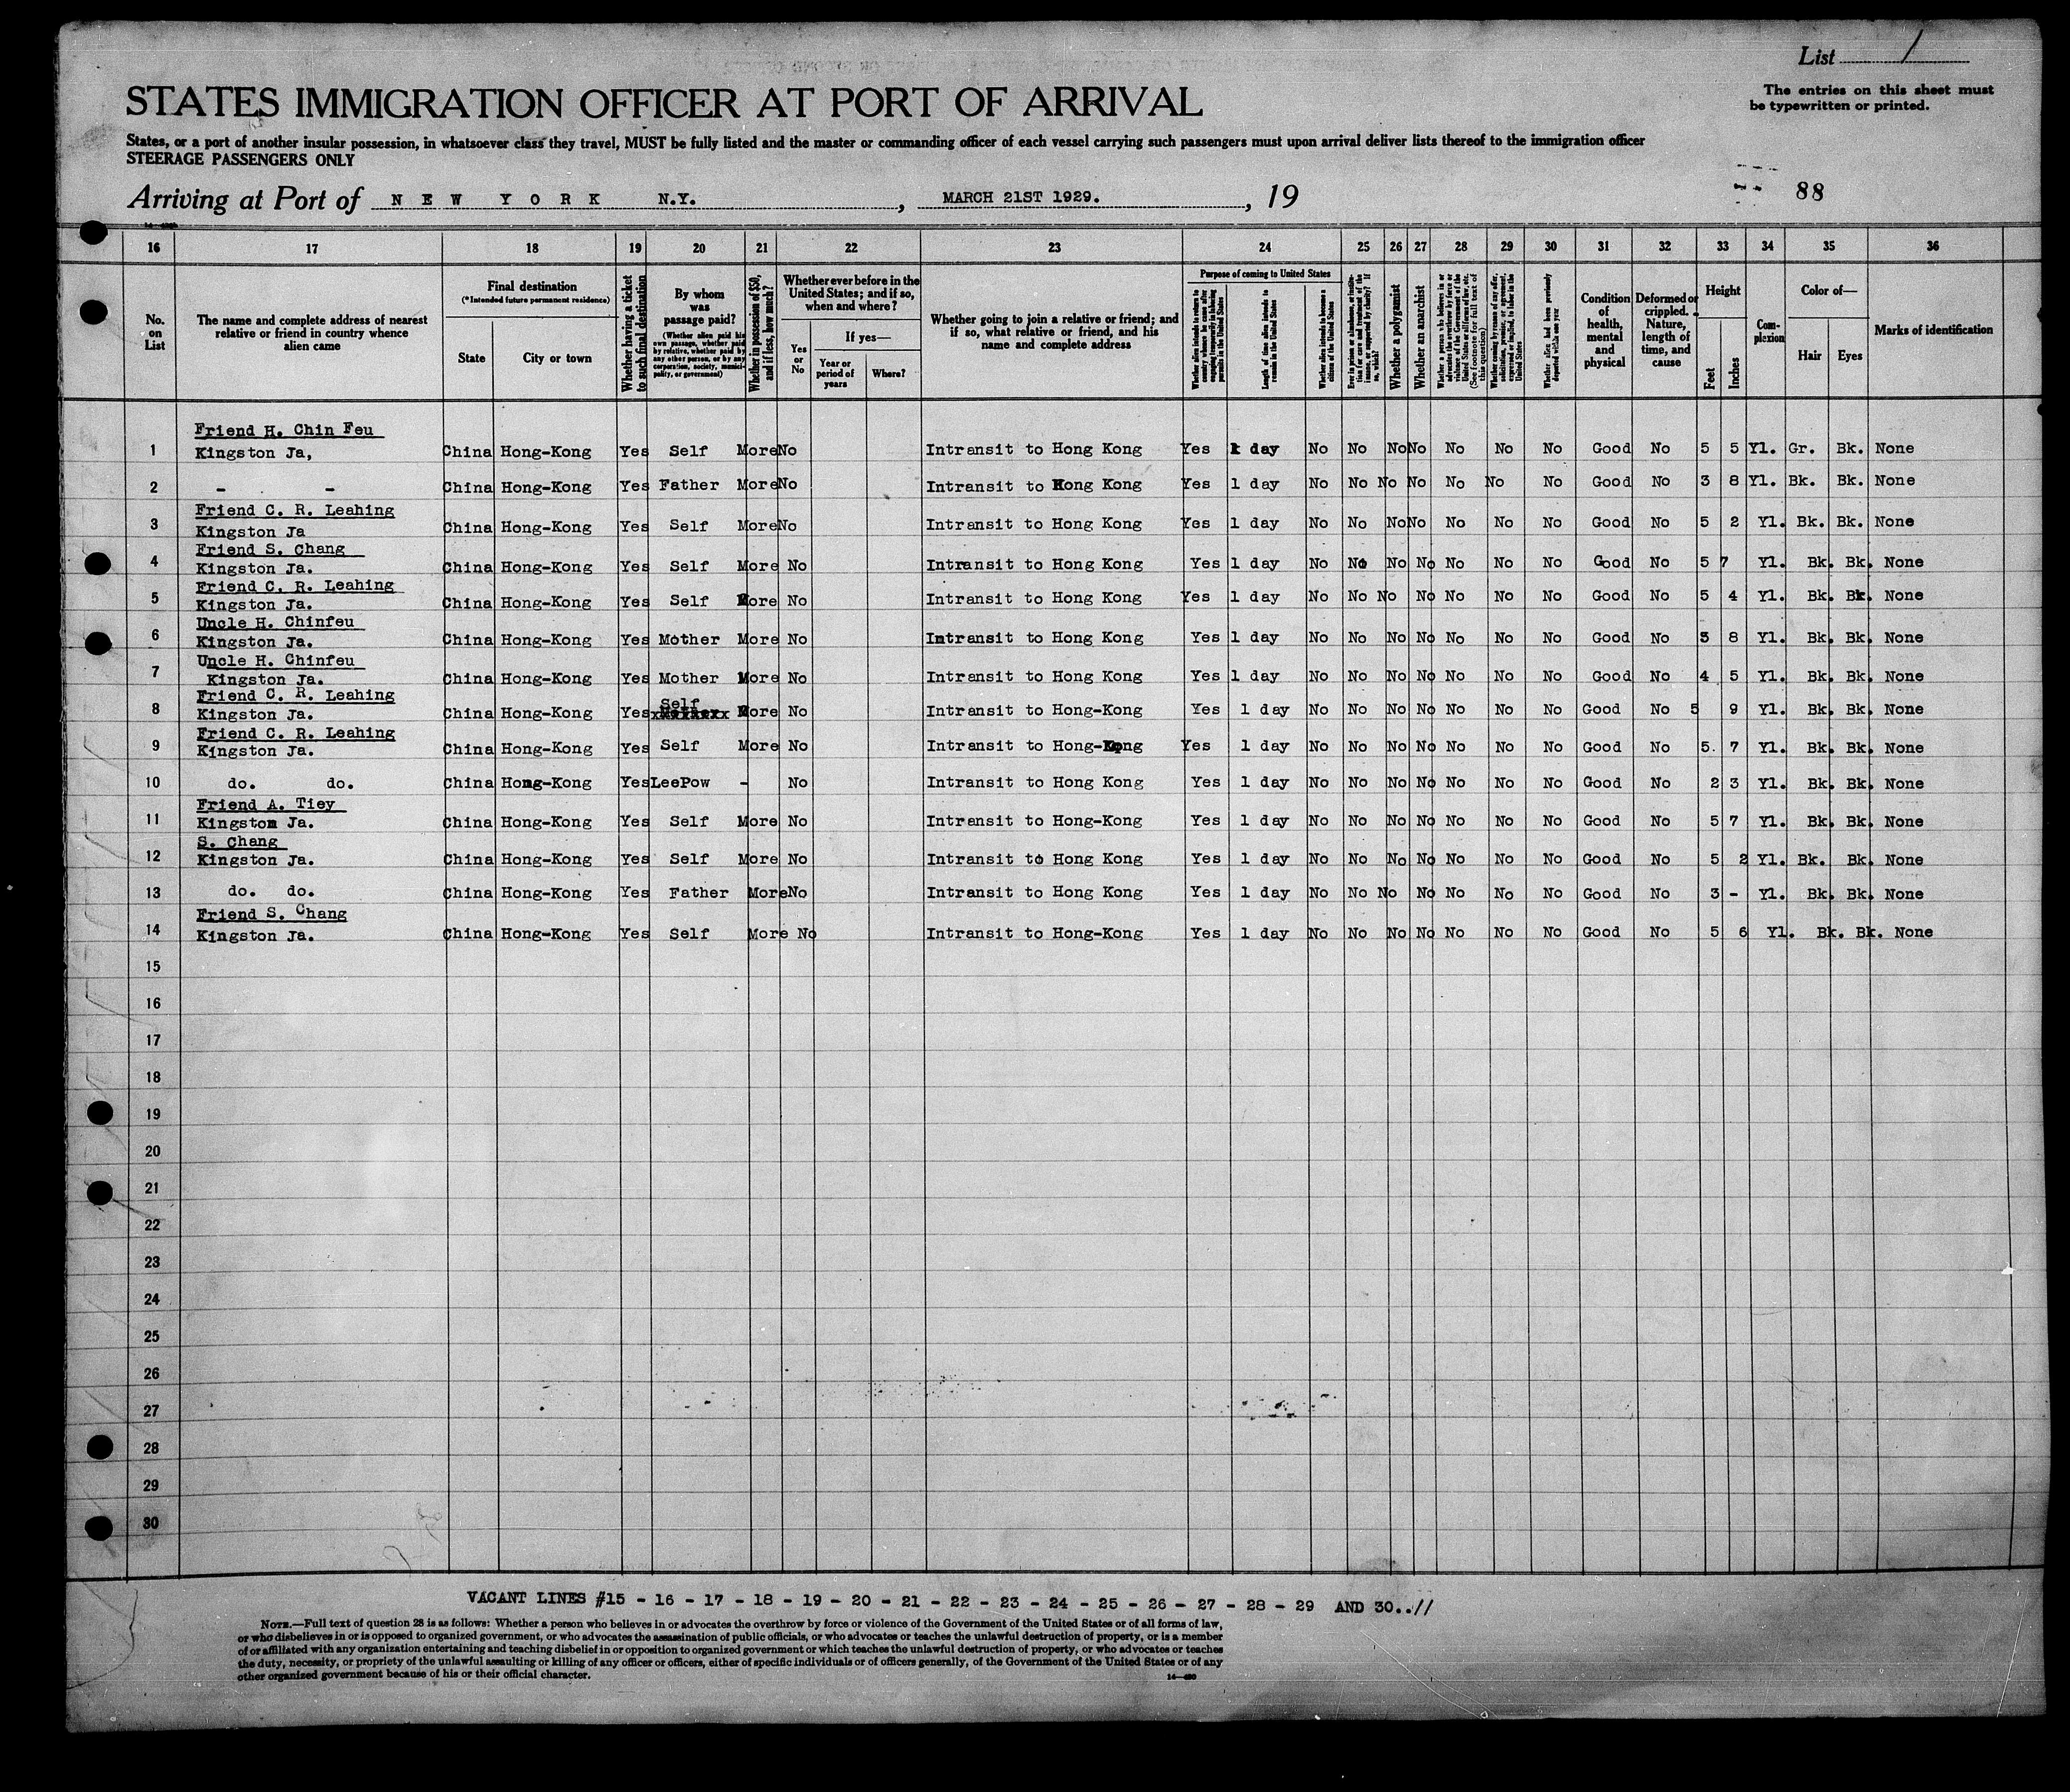 List 1
The entries on this sheet must
be typewritten or printed.
STATES IMMIGRATION OFFICER AT PORT OF ARRIVAL
States, or a port of another insular possession, in whatsoever class they travel, MUST be fully listed and the master or commanding officer of each vessel carrying such passengers must upon arrival deliver lists thereof to the immigration officer
STEERAGE PASSENGERS ONLY
Arriving at Port of NEW YORK N.Y. , MARCH 21ST 1929. , 19 88
16 17 18 19 20 21 22 23 24 25 26 27 28 29 30 31 32 33 34 35 36
No. on List
The name and complete address of nearest relative or friend in country whence alien came
Final destination
(*Intended future permanent residence)
State
City or town
Whether having a ticket to such final destination
By whom was passage paid?
(Whether alien paid his own passage, whether paid by relative, whether paid by any other person, or by any corporation, society, municipality, or government)
Whether in possession of $50, and if less, how much?
Whether ever before in the United States; and if so, when and where?
Yes or No
If yes—
Year or period of years
Where?
Whether going to join a relative or friend; and if so, what relative or friend, and his name and complete address
Purpose of coming to United States
Whether alien intends to return to country whence he came after engaging temporarily in laboring pursuits in the United States
Length of time alien intends to remain in the United States
Whether alien intends to become a citizen of the United States
Ever in prison or almshouse, or institution for care and treatment of the insane, or supported by charity? If so, which?
Whether a polygamist
Whether an anarchist
Whether a person who believes in or advocates the overthrow by force or violence of the Government of the United States or all forms of law, etc. (See footnote for full text of this question)
Whether coming by reason of any offer, solicitation, promise, or agreement, expressed or implied, to labor in the United States
Whether alien had been previously deported within one year
Condition of health, mental and physical
Deformed or crippled. Nature, length of time, and cause
Height
Feet
Inches
Complexion
Color of—
Hair
Eyes
Marks of identification
Friend H. Chin Feu
1 Kingston Ja, China Hong-Kong Yes Self More No Intransit to Hong Kong Yes 1 day No No No No No No No Good No 5 5 Yl. Gr. Bk. None
2 - - China Hong-Kong Yes Father More No Intransit to Hong Kong Yes 1 day No No No No No No No Good No 3 8 Yl. Bk. Bk. None
Friend C. R. Leahing
3 Kingston Ja China Hong-Kong Yes Self More No Intransit to Hong Kong Yes 1 day No No No No No No No Good No 5 2 Yl. Bk. Bk. None
Friend S. Chang
4 Kingston Ja. China Hong-Kong Yes Self More No Intransit to Hong Kong Yes 1 day No No No No No No No Good No 5 7 Yl. Bk. Bk. None
Friend C. R. Leahing
5 Kingston Ja. China Hong-Kong Yes Self More No Intransit to Hong Kong Yes 1 day No No No No No No No Good No 5 4 Yl. Bk. Bk. None
Uncle H. Chinfeu
6 Kingston Ja. China Hong-Kong Yes Mother More No Intransit to Hong Kong Yes 1 day No No No No No No No Good No 3 8 Yl. Bk. Bk. None
Uncle H. Chinfeu
7 Kingston Ja. China Hong-Kong Yes Mother More No Intransit to Hong Kong Yes 1 day No No No No No No No Good No 4 5 Yl. Bk. Bk. None
Friend C. R. Leahing
8 Kingston Ja. China Hong-Kong Yes Self More No Intransit to Hong-Kong Yes 1 day No No No No No No No Good No 5 9 Yl. Bk. Bk. None
Friend C. R. Leahing
9 Kingston Ja. China Hong-Kong Yes Self More No Intransit to Hong-Kong Yes 1 day No No No No No No No Good No 5. 7 Yl. Bk. Bk. None
10 do. do. China Hong-Kong Yes LeePow - No Intransit to Hong Kong Yes 1 day No No No No No No No Good No 2 3 Yl. Bk. Bk. None
Friend A. Tiey
11 Kingston Ja. China Hong-Kong Yes Self More No Intransit to Hong-Kong Yes 1 day No No No No No No No Good No 5 7 Yl. Bk. Bk. None
S. Chang
12 Kingston Ja. China Hong-Kong Yes Self More No Intransit to Hong Kong Yes 1 day No No No No No No No Good No 5 2 Yl. Bk. Bk. None
13 do. do. China Hong-Kong Yes Father More No Intransit to Hong Kong Yes 1 day No No No No No No No Good No 3 - Yl. Bk. Bk. None
Friend S. Chang
14 Kingston Ja. China Hong-Kong Yes Self More No Intransit to Hong-Kong Yes 1 day No No No No No No No Good No 5 6 Yl. Bk. Bk. None
15
16
17
18
19
20
21
22
23
24
25
26
27
28
29
30
VACANT LINES #15 - 16 - 17 - 18 - 19 - 20 - 21 - 22 - 23 - 24 - 25 - 26 - 27 - 28 - 29 AND 30..//
NOTE.—Full text of question 28 is as follows: Whether a person who believes in or advocates the overthrow by force or violence of the Government of the United States or of all forms of law,
or who disbelieves in or is opposed to organized government, or who advocates the assassination of public officials, or who advocates or teaches the unlawful destruction of property, or is a member
of or affiliated with any organization entertaining and teaching disbelief in or opposition to organized government or which teaches the unlawful destruction of property, or who advocates or teaches
the duty, necessity, or propriety of the unlawful assaulting or killing of any officer or officers, either of specific individuals or of officers generally, of the Government of the United States or of any
other organized government because of his or their official character.